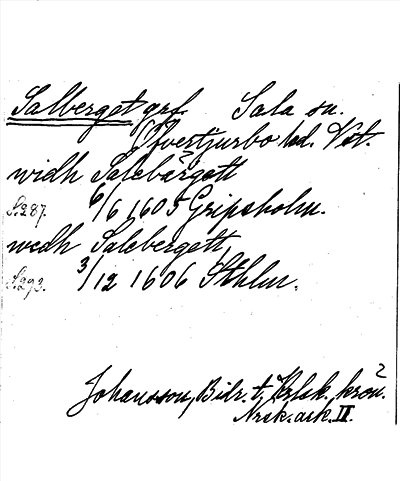 Salberget grf. Sala sn.
Öfvertjurbo hd. Vstm.
widh Salebärgett
S.287. 6/6 1605 Gripsholm.
wedh Salebergett,
S.293. 3/12 1606 Sthlm.
Johansson, Bidr. t. Krlsk. krön.
Nrsk. ark. II.